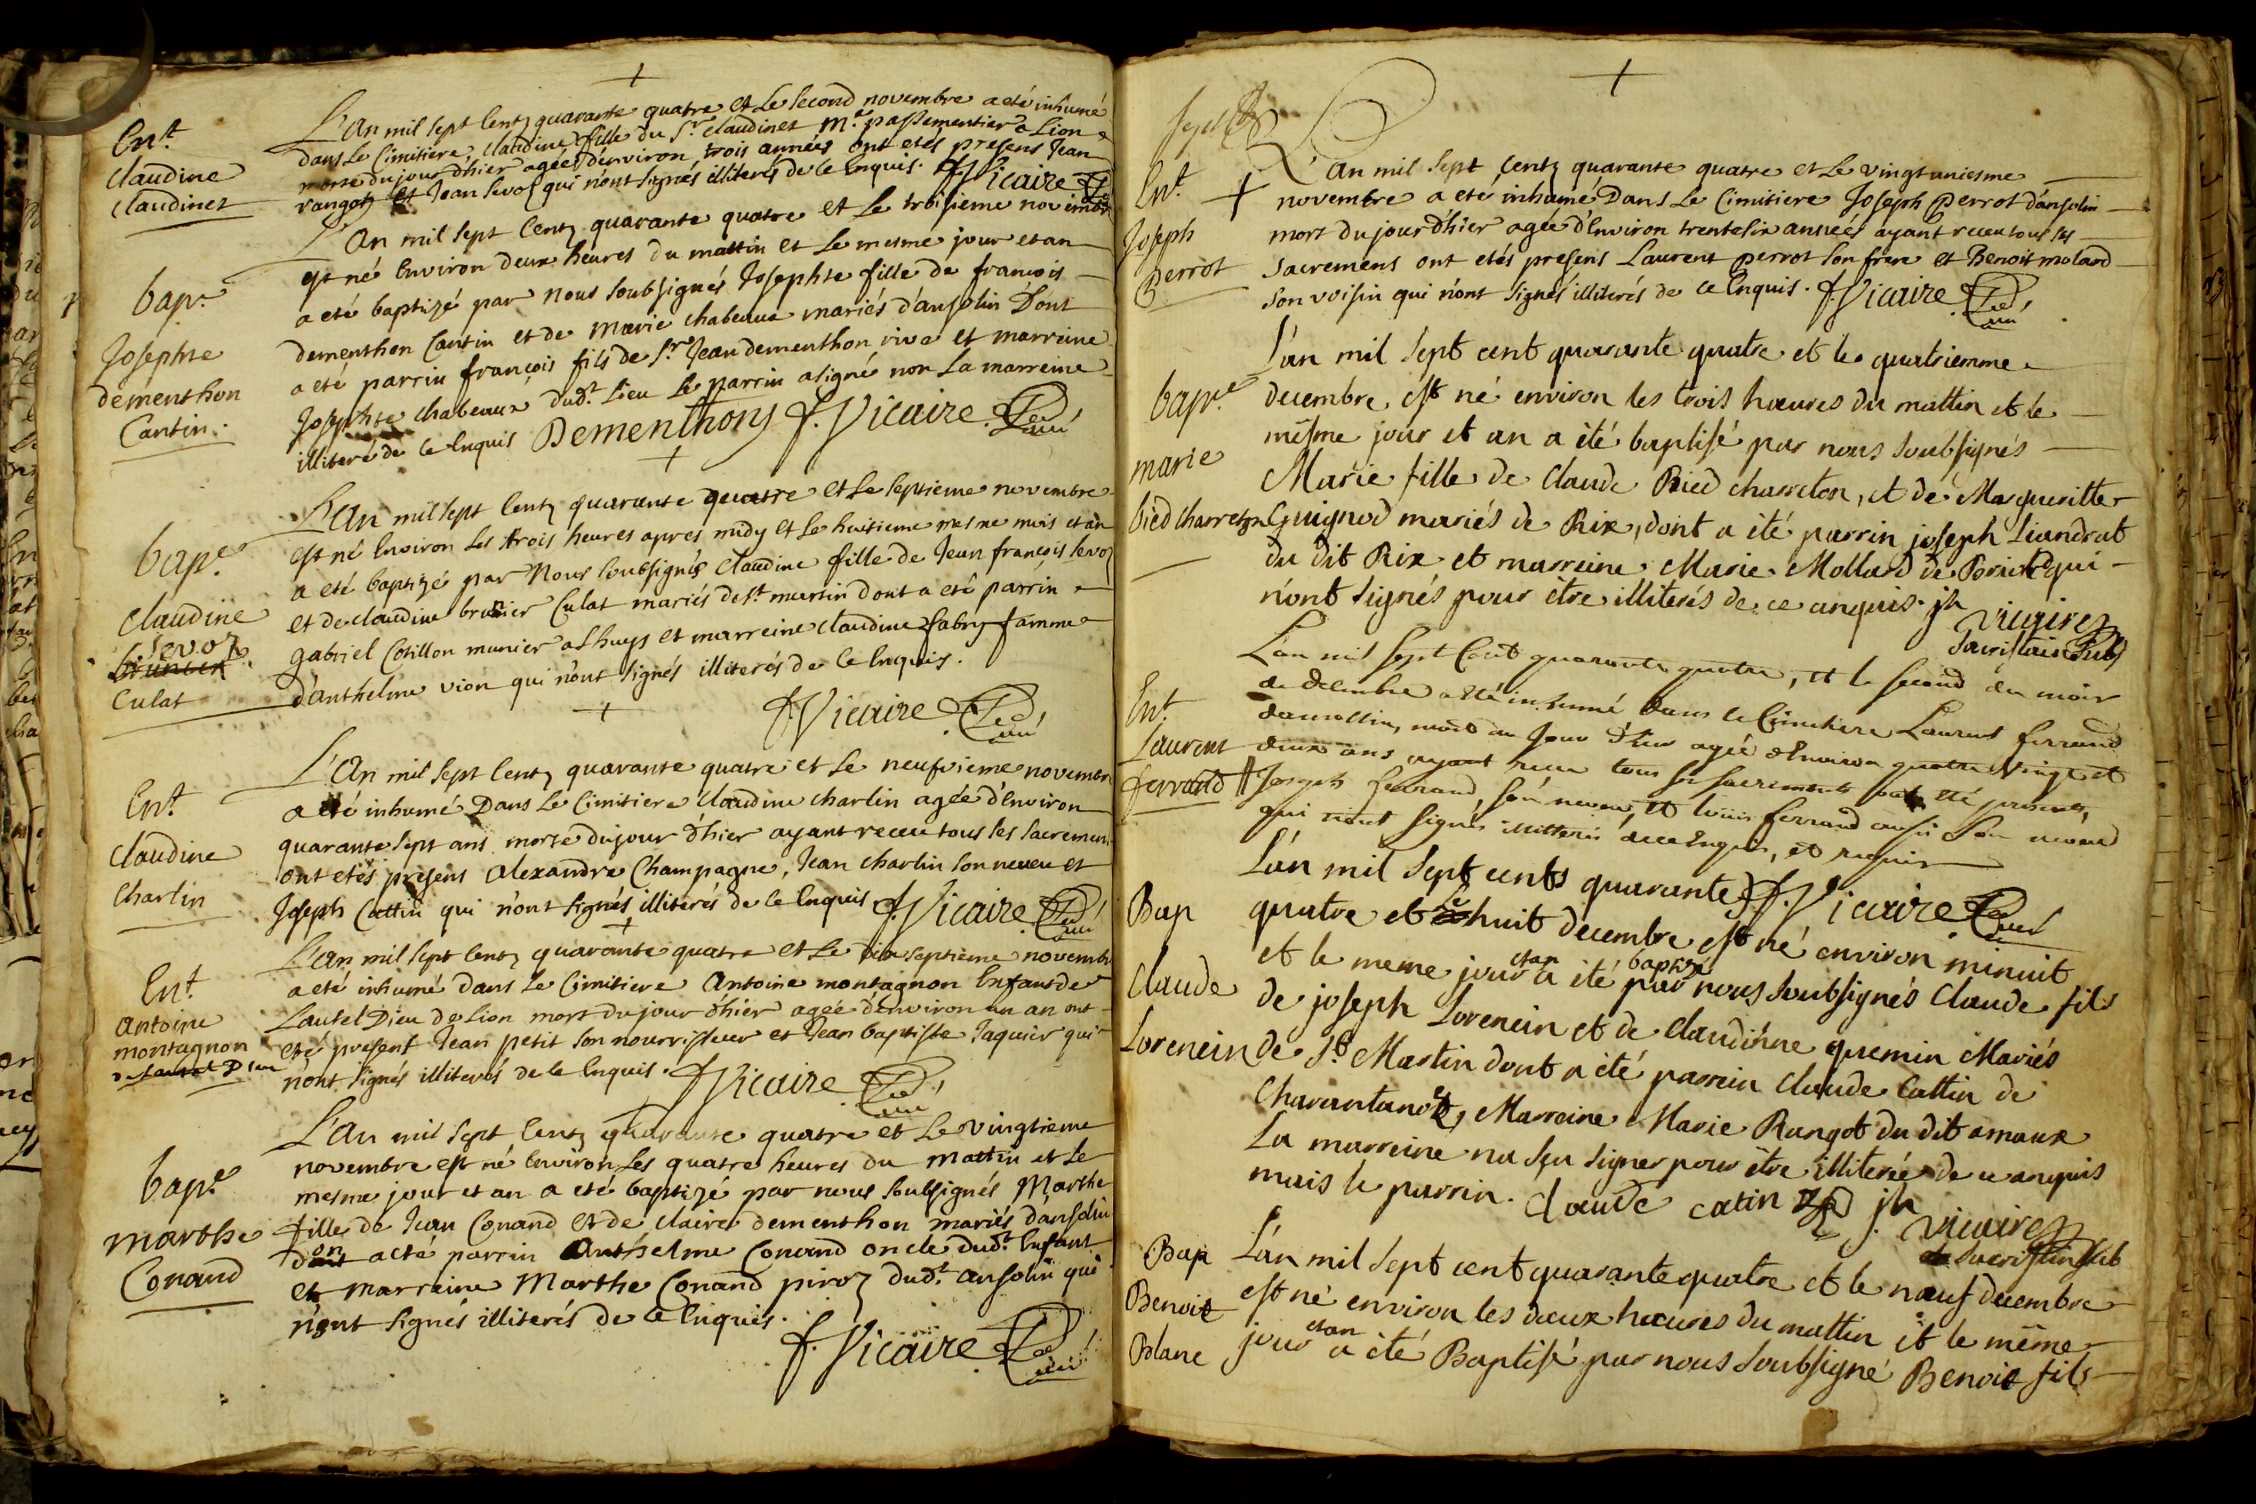 +
Ent.
claudine
claudinet
L'An mil sept centz quarante quatre et Le second novembre a eté inhumé
dans Le Cimitiere, claudine fille du Sr. claudinet Me. passementier a Lion
morte du jour d'hier agée d'environ trois années ont etés presens Jean
rangot et Jean sevoz qui n'ont signés illiterés de ce Enquis. f. Vicaire
bap.
Josephte
dementhon
Cantin.
L'An mil sept Centz quarante quatre et Le troisieme novembre
est né Environ deux heures du mattin et Le mesme jour et an
a eté baptizé par nous soubsignés Josephte fille de francois
dementhon Cantin et de marie chabeaux mariés d'ansolin Dont
a eté parrin françois fils de Sr. Jean dementhon rive et marreine
Josephte chabeaux dudt. Lieu Le parrin a signé non La marreine
illiteré de ce Enquis Dementhon f. Vicaire
+
bape
Claudine
Sevoz
brunier
Culat
L'An mil sept centz quarante quatre et Le septieme novembre
est né Environ Les trois heures apres midy et Le huitieme mesme mois et an
a eté baptizé par Nous soubsignés Claudine fille de Jean françois sevoz
et de claudine brunier Culat mariés de St. martin dont a eté parrin
gabriel Cotillon munier a Lhuys et marreine claudine fabry famme
d'anthelme vion qui n'ont signés illiterés de ce Enquis.
f. Vicaire
+
Ent.
Claudine
Charlin
L'An mil sept Centz quarante quatre et Le neufvieme novembre
a eté inhumé Dans Le Cimitiere Claudine charlin agée d'Environ
quarante sept ans morte du jour d'hier ayant receu tous ses sacremens
ont etés presens alexandre Champagne, Jean charlin son neveu et
Joseph Cattin qui n'ont signés illiterés de ce Enquis f. Vicaire
+
Ent.
antoine
montagnon
de Lautel Dieu
L'an mil sept Centz quarante quatre et Le dix septieme novembre
a eté inhumé dans Le Cimitiere Antoine montagnon Enfans de
Lautel Dieu de Lion mort du jour d'hier agée d'environ un an ont
eté present Jean petit son nourrisseur et Jean baptiste Jaquier qui
n'ont signés illiterés de ce Enquis. f. Vicaire
bape
marthe
Conand
L'an mil sept Centz quarante quatre et Le vingtieme
novembre est né Environ Les quatre heures du mattin et Le
mesme jour et an a eté baptizé par nous soubsignés Marthe
fille de Jean Conand et de claire dementhon mariés d'ansolin
dont a eté parrin Anthelme Conand oncle dudt. Enfant
et marreine Marthe Conand piroz dudt. ansolin qui
n'ont signés illiterés de ce Enquis.
f. Vicaire
+
Ent. +
Joseph
Perrot
L'an mil sept Centz quarante quatre et Le vingt uniesme
novembre a eté inhumé Dans Le Cimitiere Joseph Perrot d'ansolin
mort du jour d'hier agée d'Environ trente six années ayant receu tous ses
sacremens ont etés presens Laurent perrot son frere et Benoit molard
son voisin qui n'ont signés illiterés de ce Enquis. f. Vicaire
bape
marie
bied charreton
L'an mil sept cent quarante quatre et le quatriemme
decembre, est né environ les trois hœures du mattin et le
mesme jour et an a été baptisé par nous soubsignés
Marie fille de Claude Bied charreton, et de Margueritte
Guignod mariés de Rix, dont a été parrin joseph Liandrat
du dit Rix et marreine Marie Mollard de qui
n'ont signés pour être illiterés de ce anquis. jh Vicaire
Sacristain
Ent.
Laurent
ferrand
L'an mil sept Cent quarante quatre, et le second du mois
de decembre a été inhumé dans le Cimitiere Laurent ferrand
mort du jour d'hier agée d'Environ quatre vingt et
deux ans ayant receu tous ses sacrements ont été presents,
Joseph ferrand son neveu, et louis ferrand aussi son neveu
qui n'ont signés illitterés de ce Enquis, et requis
f. Vicaire
Bap
Claude
Lorencin
L'an mil sept cents quarante
quatre et le huit decembre est né environ minuit
et le meme jour et an a été baptizé par nous soubsignés Claude fils
de joseph Lorencin et de Claudinne quemin Mariés
de St. Martin dont a été parrein Claude Cattin de
Charantanoz, Marreine Marie Rangot du dit amaux
La marreine na sçu signer pour être illiterée de ce anquis
mais le parrin. Claude catin jh Vicaire
Sacristain
Bap
Benoit
Blanc
L'an mil sept cent quarante quatre et le nœuf decembre
est né environ les dœux hœures du mattin et le même
jour et an a été Baptisé par nous soubsigné Benoit fils